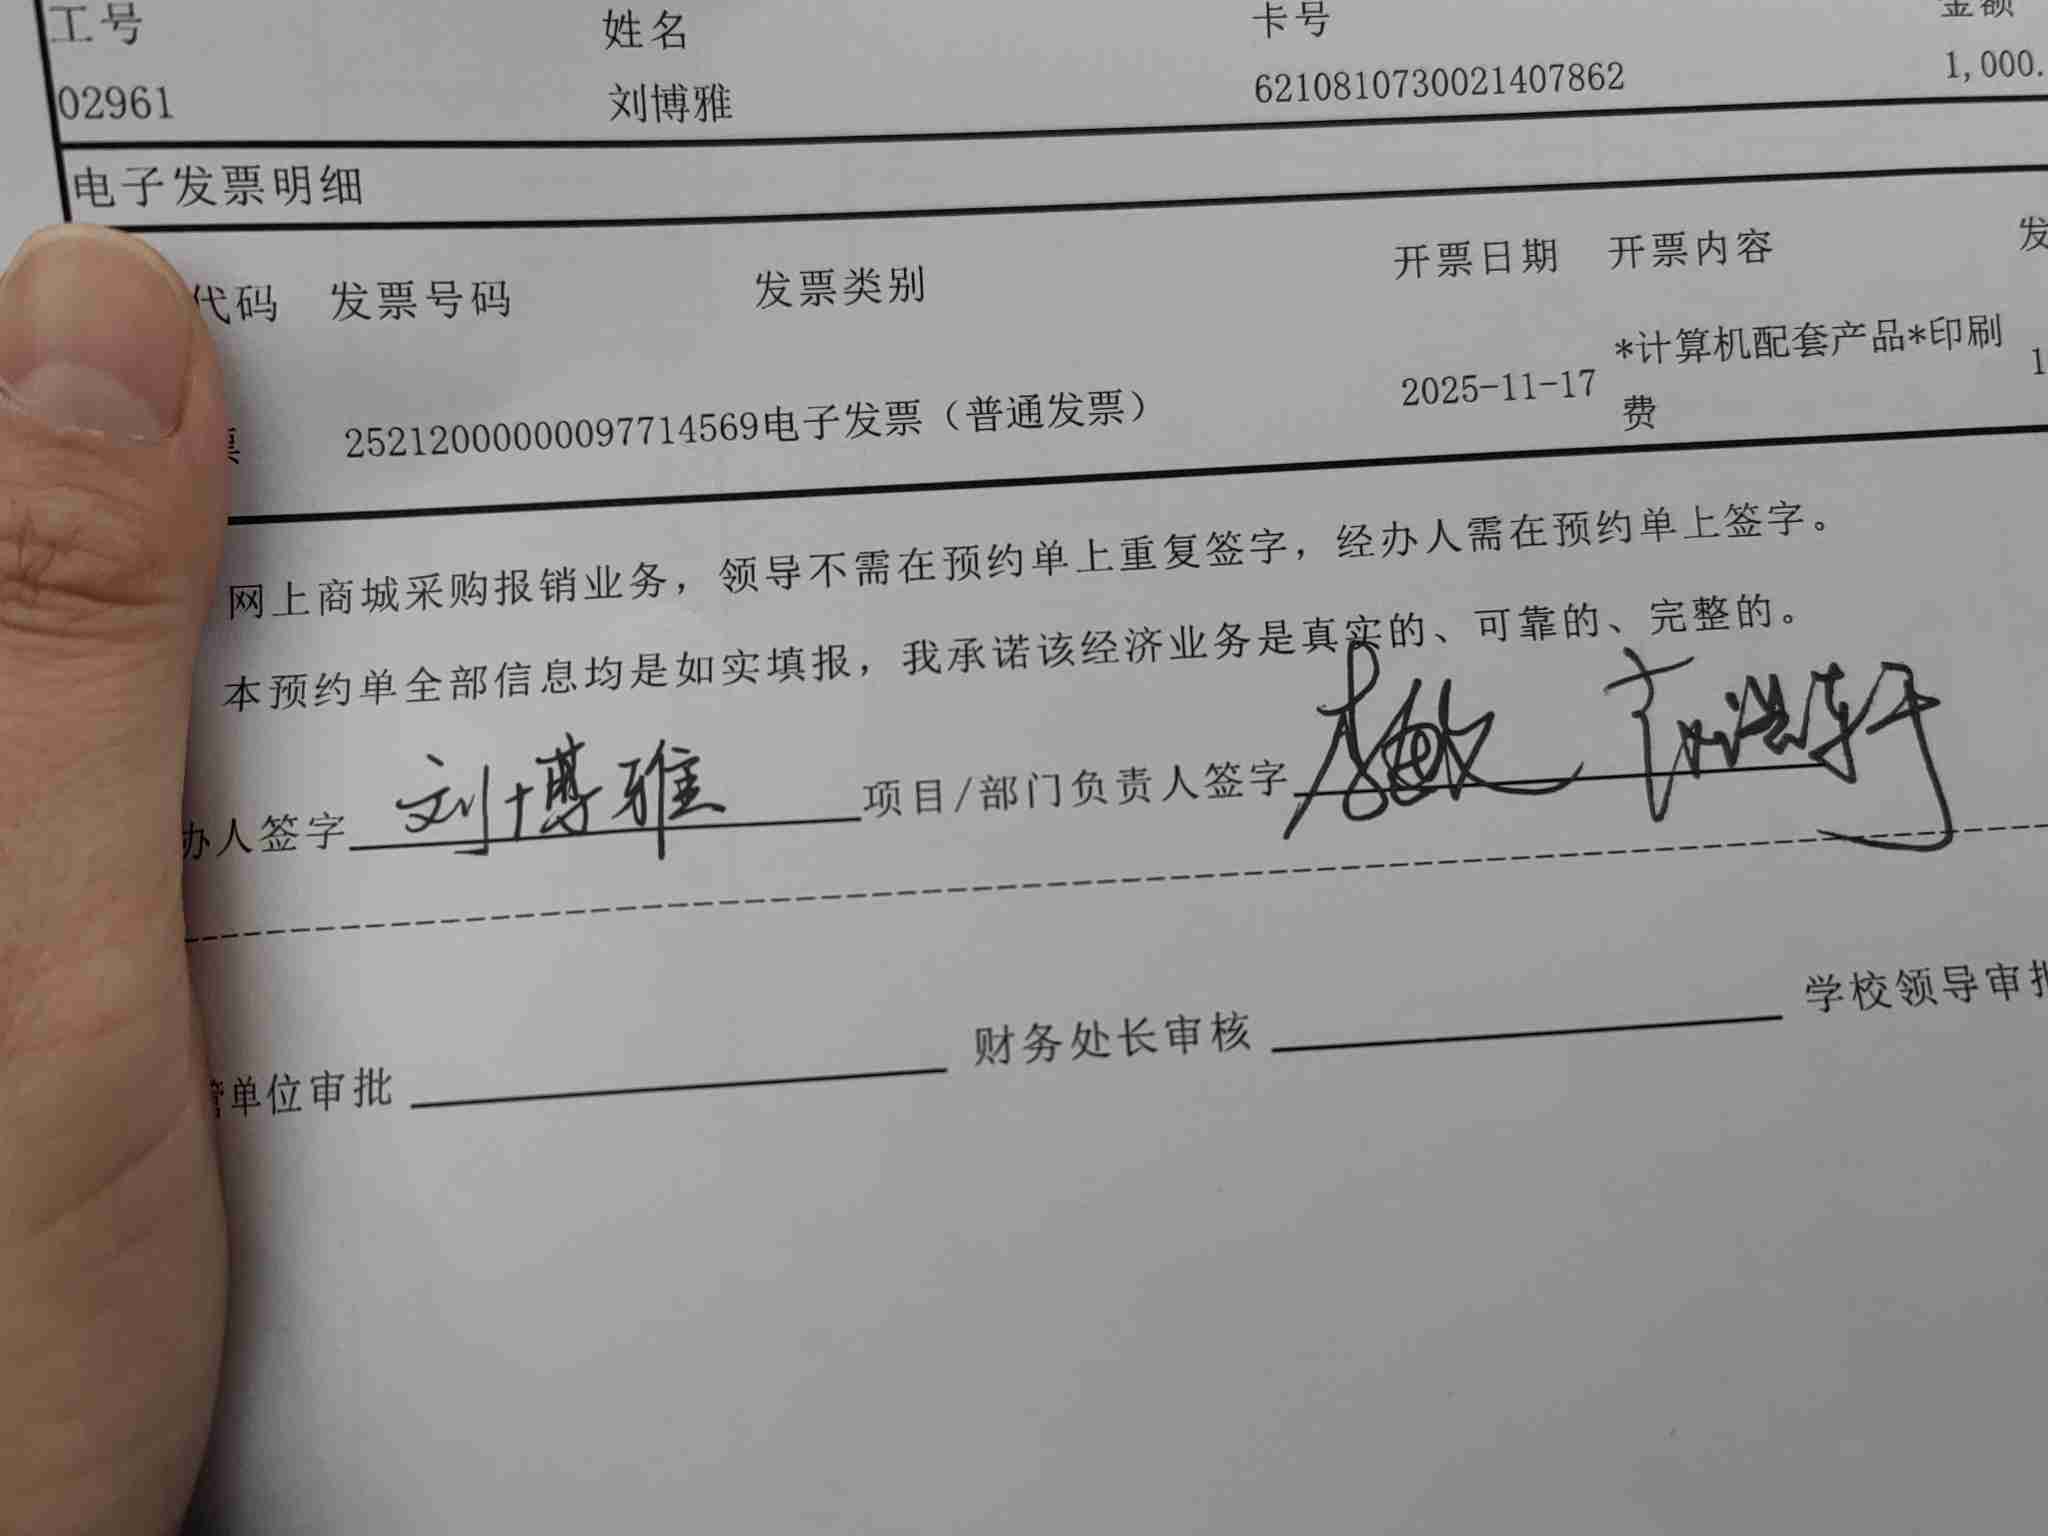 工号 姓名 卡号 金额
02961 刘博雅 6210810730021407862 1,000.
电子发票明细
代码 发票号码 发票类别 开票日期 开票内容 发
票 25212000000097714569电子发票（普通发票） 2025-11-17 *计算机配套产品*印刷 1
费
网上商城采购报销业务，领导不需在预约单上重复签字，经办人需在预约单上签字。
本预约单全部信息均是如实填报，我承诺该经济业务是真实的、可靠的、完整的。
办人签字 刘博雅 项目/部门负责人签字
管单位审批 财务处长审核 学校领导审批